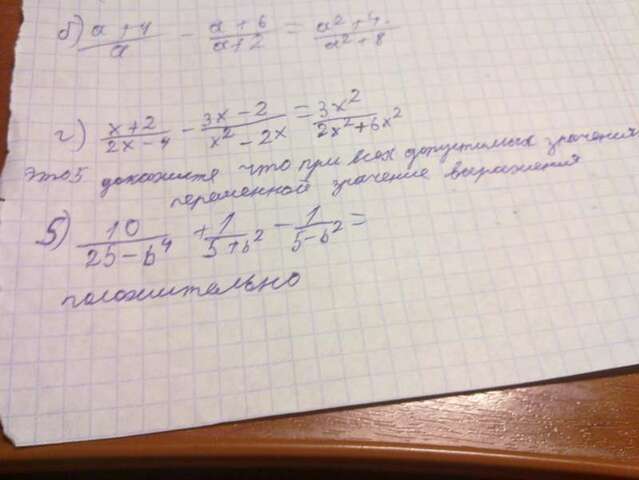 б) (a + 4)/a - (a + 6)/(a + 2) = (a² + 4)/(a² + 8)
г) (x + 2)/(2x - 4) - (3x - 2)/(x² - 2x) = 3x²/(2x² + 6x²)
это 5 докажите что при всех допустимых значений
переменной значение выражений
5) 10/(25 - b⁴) + 1/(5 + b²) - 1/(5 - b²) =
положительно